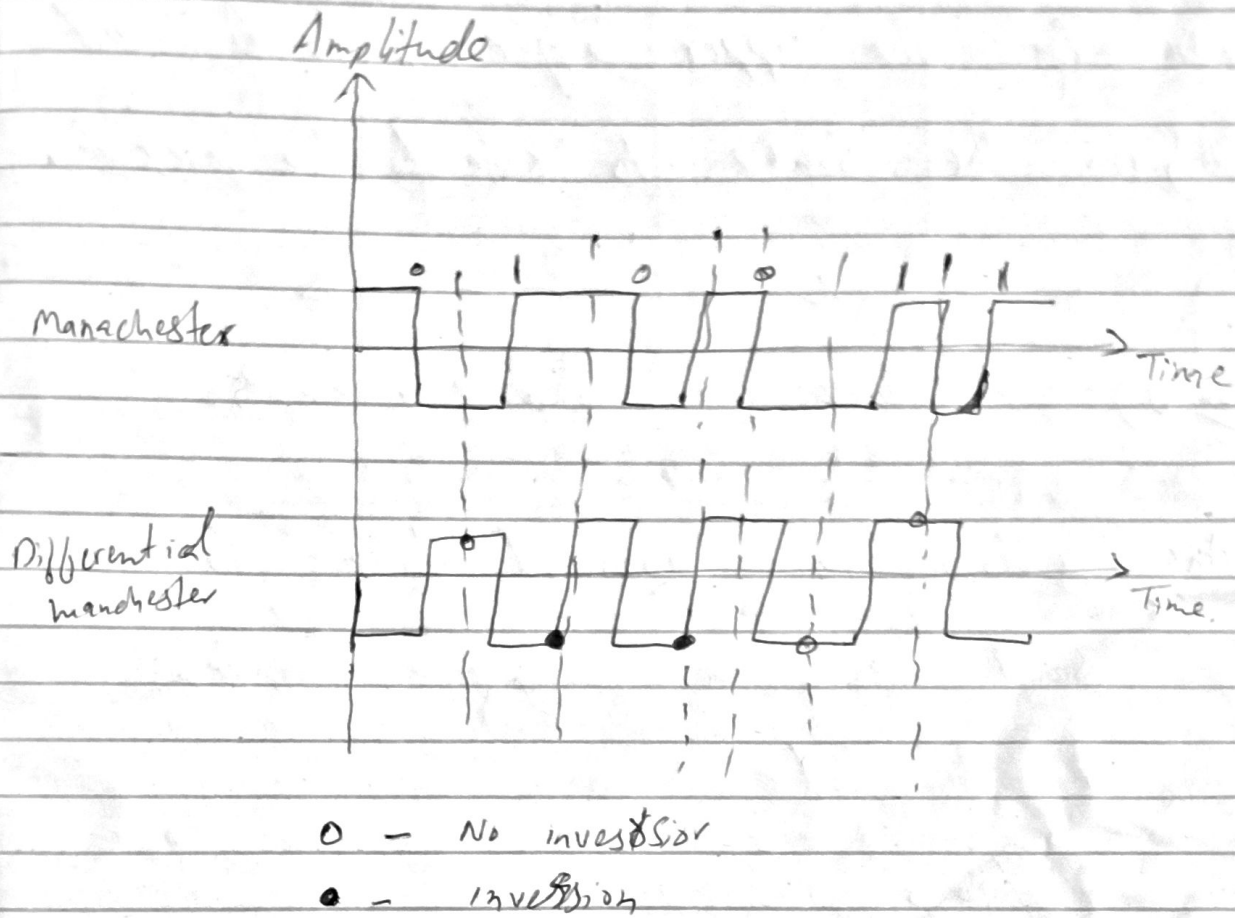 Amplitude
0 1 0 0 1 1
Manachester
Time
Differential
manchester
Time.
o - No inversion
• - inversion